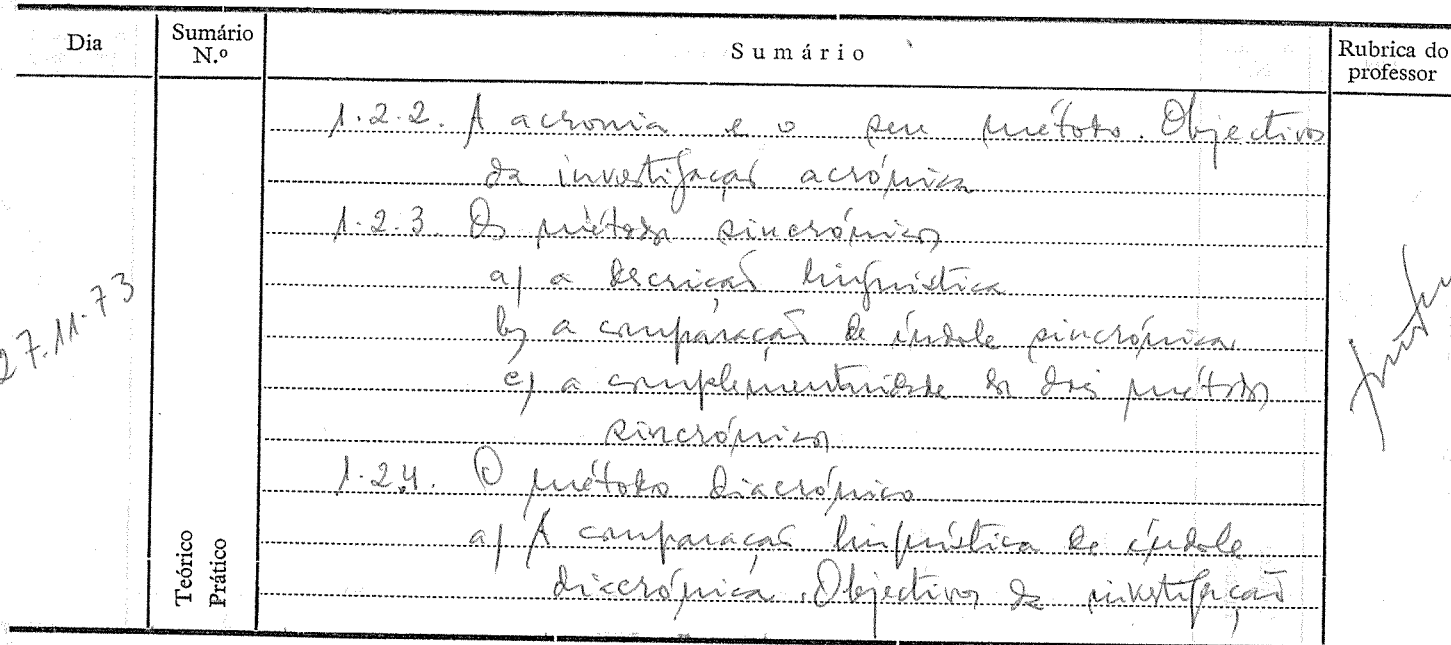 Dia
Sumário
N.º
Sumário
Rubrica do
professor
1.2.2. A acronia e o seu método. Objectivos
da investigação acrónica
1.2.3. Os métodos sincrónicos
a) a descrição linguística
b) a comparação de índole sincrónica
c) a complementaridade dos dois métodos
sincrónicos
1.2.4. O método diacrónico
a) A comparação linguística de índole
diacrónica. Objectivos da investigação
27.11.73
Teórico
Prático